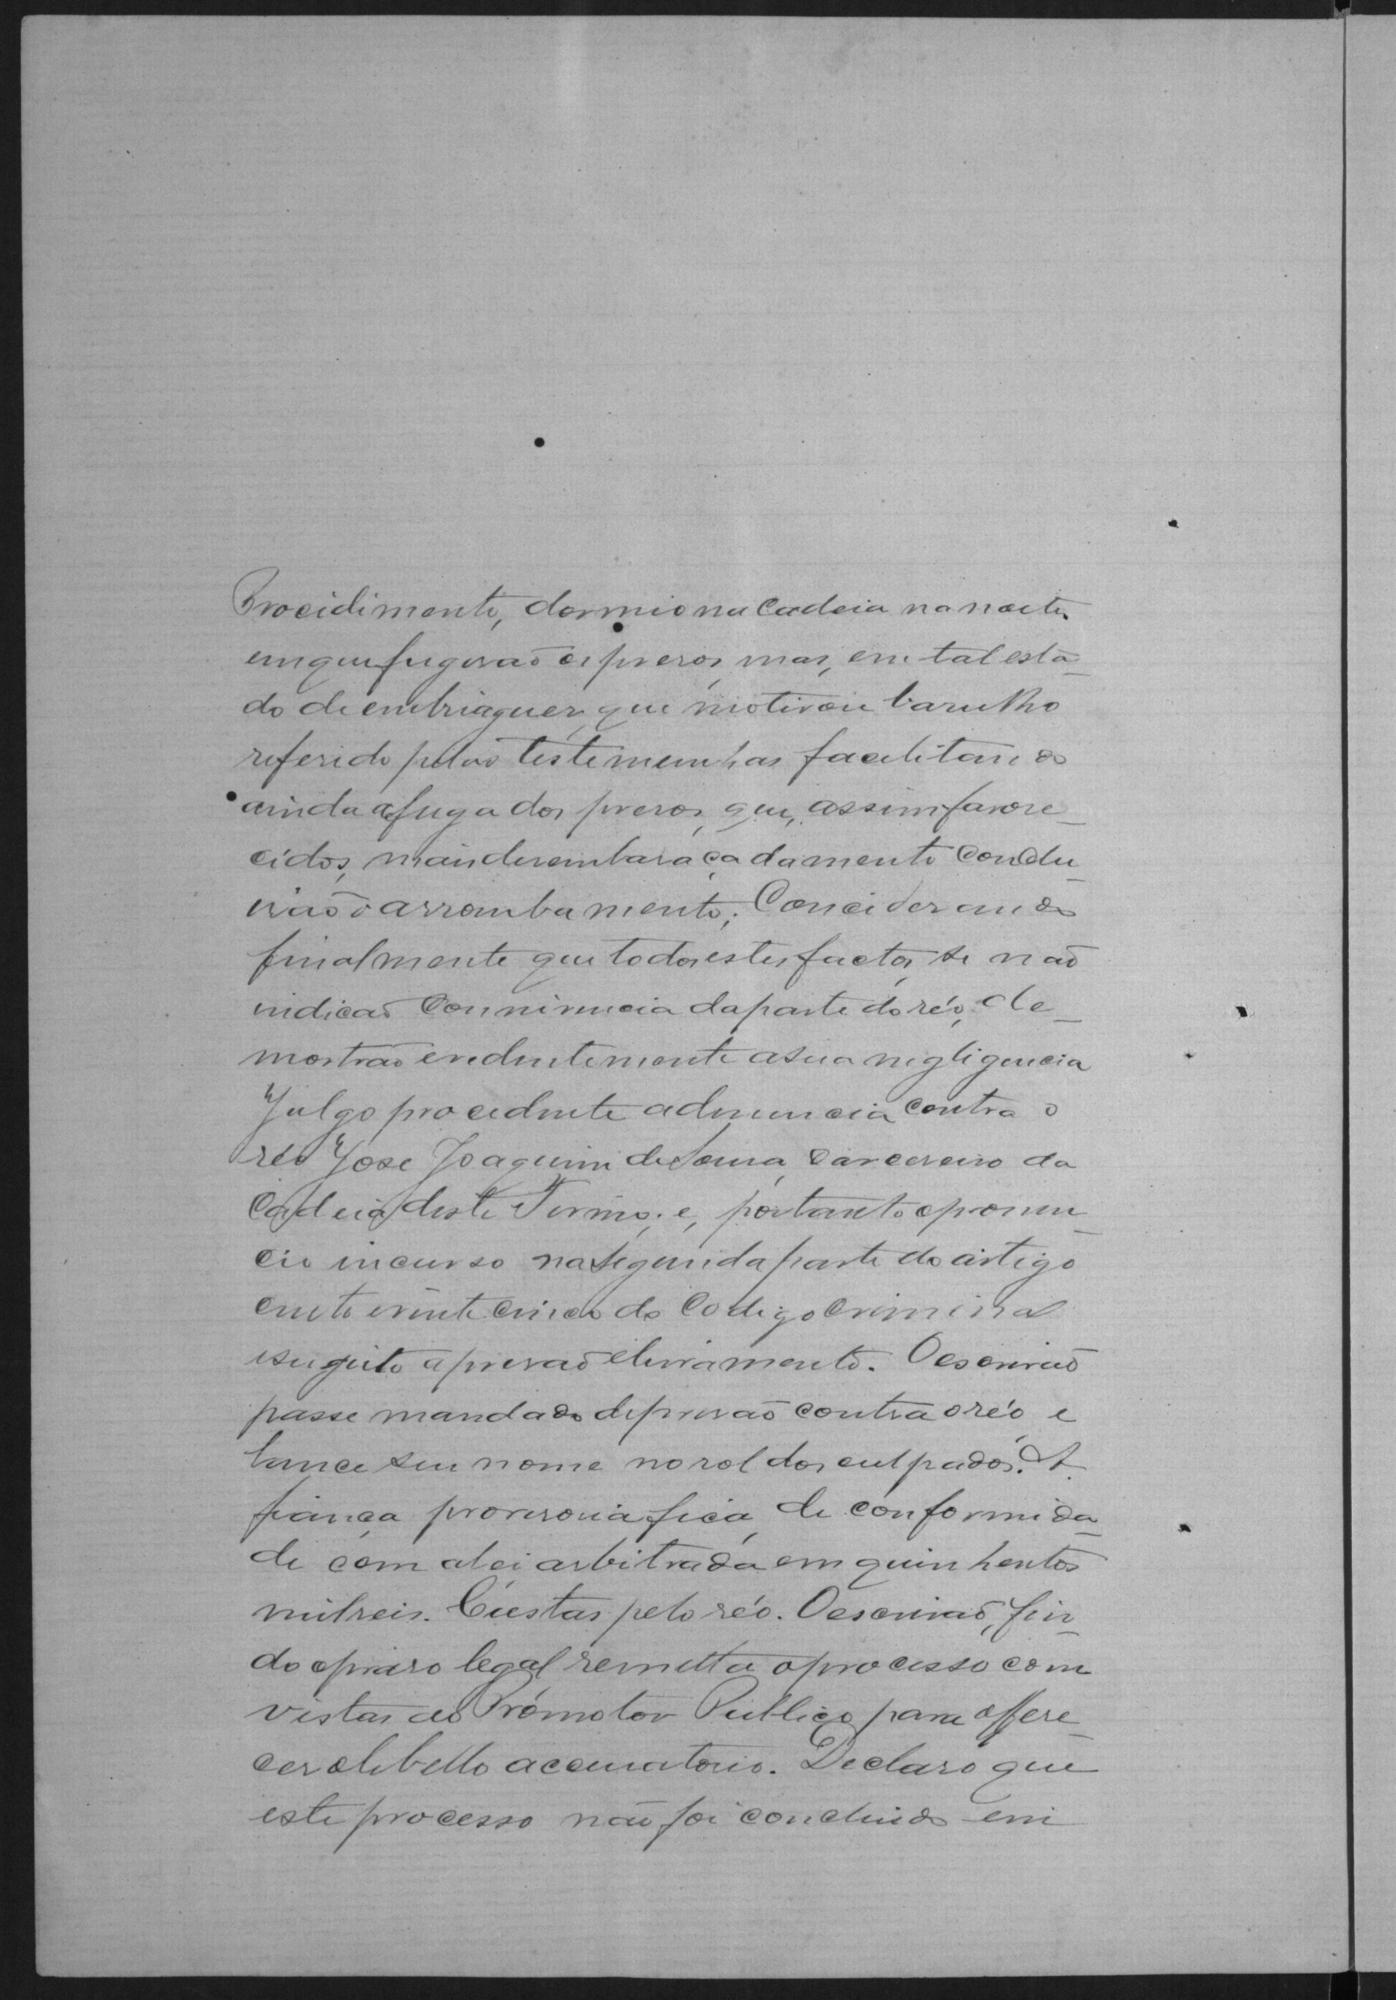 Procidimento, dormio na Cadeia na noite
em que fugirão os presos, mas, em tal esta_
do de embriaguez, que motivou barulho
referido pelas testemunhas facilitando
ainda a fuga dos presos, que, assim favore_
cidos, mais desembaraçadamente condu_
zirão o arrombamento; Conciderando
finalmente que todos estes factos, se não
indicão connivencia da parte do réo, de_
mostrão evedentemente a sua negligencia
Julgo procedente a denuncia contra o
réo José Joaquim de Souza, carcereiro da
Cadeia deste Termo; e, portanto o pronun_
cio incurso na segunda parte do artigo
cento e vinte cinco do Codigo Criminal
e sugeito a prisão e livramento. O escrivão
passe mandado de prisão contra o réo e
lance seu nome no rol dos culpados. A
fiança provisoria fica, de conformida_
de com a lei arbitrada em quinhentos
mil reis. Custas pelo réo. O escrivão, fin_
do o praso legal remetta o processo com
vistas ao Promotor Publico para offere_
cer o libello accusatorio. Declaro que
este processo não foi concluido em